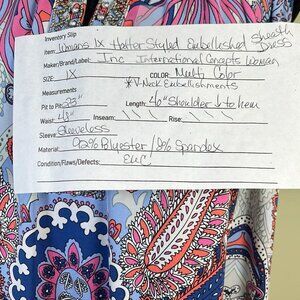 Inventory Slip
Item: Womans 1X Halter Styled Embellished Sheath Dress
Maker/Brand/Label: Inc International Concepts Woman
SIZE: 1X COLOR: Multi Color
Measurements *V-Neck Embellishments
Pit to Pit: 23" Length: 40" Shoulder to hem
Waist: 43" Inseam: Rise:
Sleeve: Sleeveless
Material: 92% Polyester / 8% Spandex
Condition/Flaws/Defects: EUC!